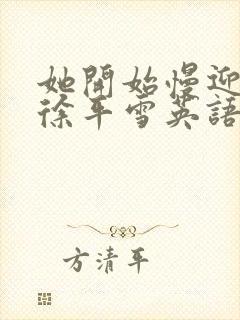 她開始慢迎
徐平雪英語
方清平